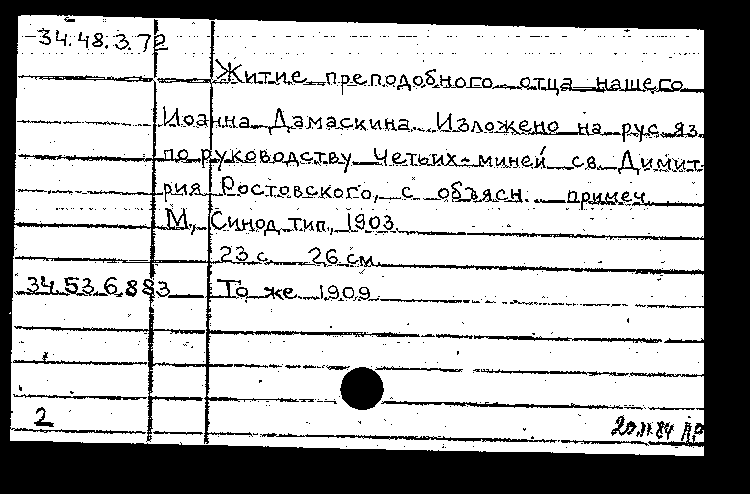 34.48.3.72
Житие преподобного отца нашего
Иоанна Дамаскина. Изложено на рус. яз.
по руководству Четьих-миней св. Димит-
рия Ростовского, с объясн. примеч.
М., Синод. тип., 1903.
23 с. 26 см.
34.53.6.883 То же 1909.
2